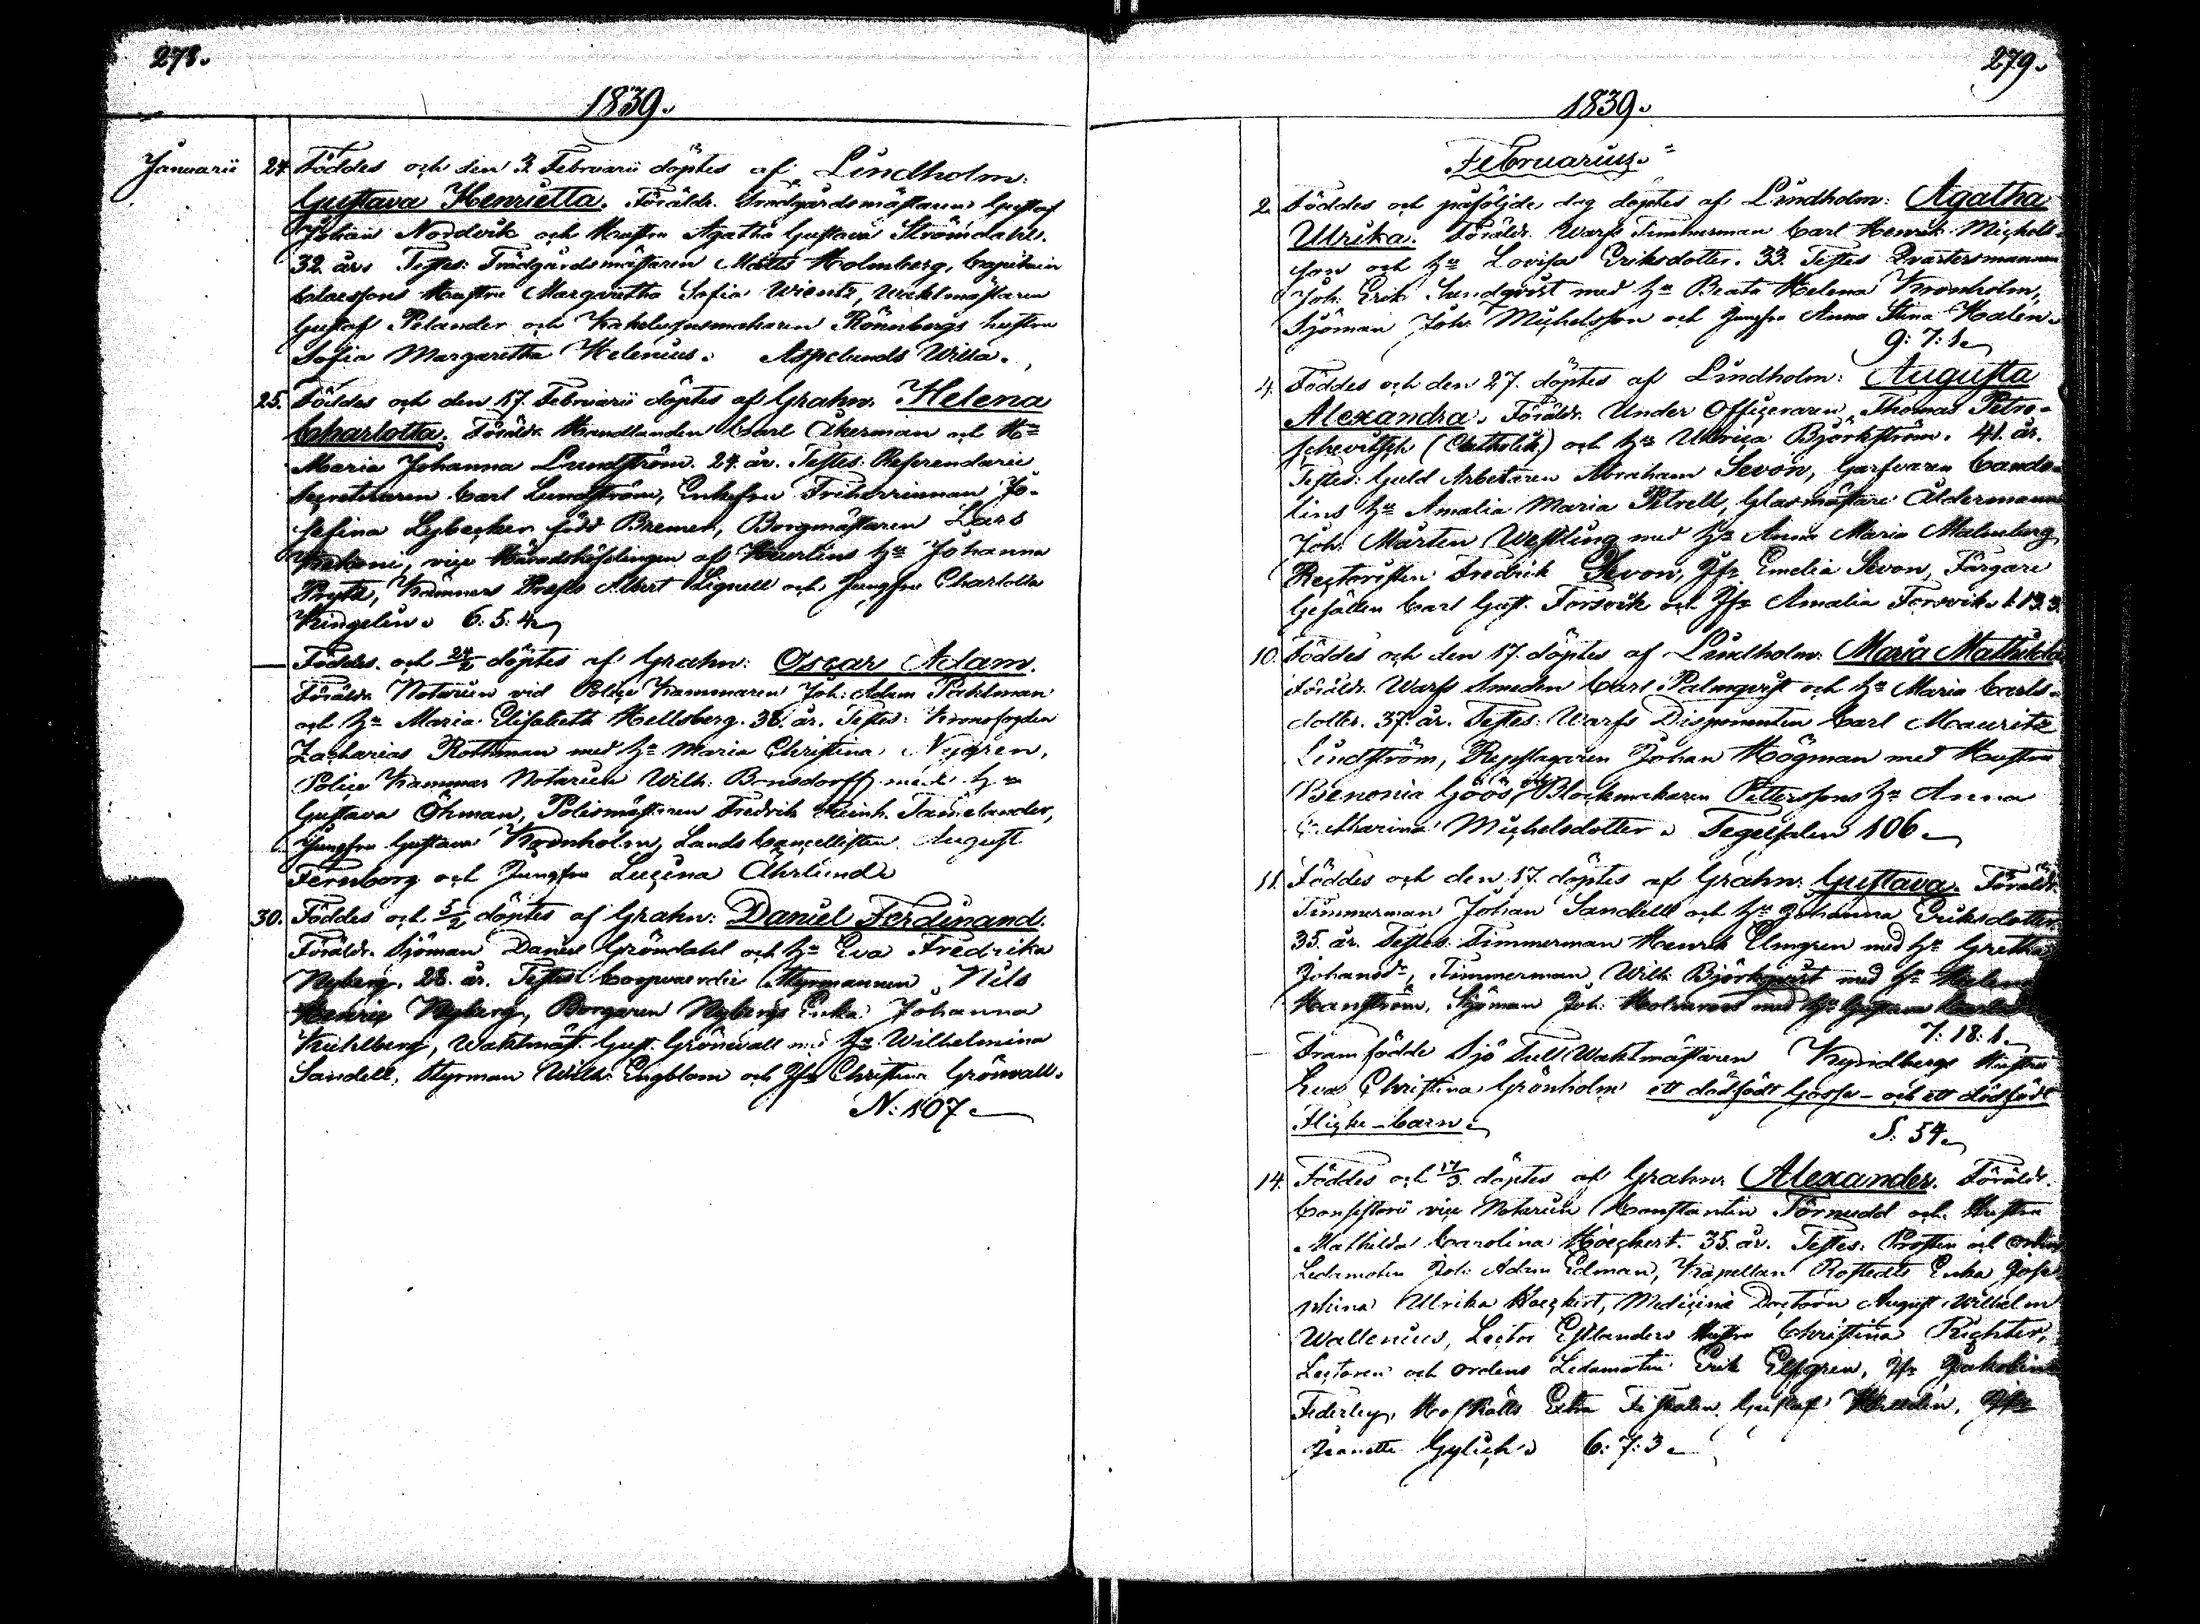 278.
1839.
Januarii 24. Föddes och den 3 Februarii döptes af Lindholm:
Gustava Henrietta. Föräldr. Trädgårdsmästaren Gustaf
Johan Nordvik och Hustru Agatha Gustava Strömdahl.
32 år. Testes: Trädgårdsmästaren Matts Holmberg, Capitain
Claessons Hustru Margaretha Sofia Wiente, Waktmästaren
Gustaf Pelander och Kakelugnsmakaren Rönnbergs hustru
Sofia Margaretha Helenius. Aspelunds Willa.
25. Föddes och den 17. Februarii döptes af Grahn. Helena
Charlotta. Föräldr. Handlanden Carl Åkerman och H:u
Maria Johanna Lundström. 24. år. Testes: Referendarie
Secreteraren Carl Lundström, Enkefru Friherrinnan Jo-
sefina Lybecker född Bremer, Borgmästaren Lars
vice Häradshöfdingen af H:u Johanna
Prytz, Kämners Albert Lignell och Jungfru Charlotta
Ringelin. 6: 5: 4.
— Föddes och 24/2 döptes af Grahn: Oscar Adam.
Föräldr. Notarien vid Police Kammaren Joh: Adam Pahlman
och H:u Maria Elisabeth Hellsberg. 38. år. Testes: Kronofogden
Zacharias Rothman med h:u Maria Christina Nygren,
Police Kammar Notarien Wilh: Bonsdorff med h:u
Gustava Öhman, Polismästaren Fredrik Reinh. Tamelander,
Jungfru Gustava Kronholm, Lands Cancellisten August
Fernborg och Jungfru Lucina Ahrlund.
30. Föddes och 5/2 döptes af Grahn: Daniel Ferdinand.
Föräldr. Sjöman Daniel Gröndahl och h:u Eva Fredrika
Nyberg. 28. år. Testes Coopvaerdie Styrmannen Nils
Henric Nyberg, Borgaren Nybergs Enka Johanna
Kuhlberg, Waktmäst. Gust. Grönvall med h:u Wilhelmina
Sandell, Styrman Wilh: Engblom och Jfr Christina Grönvall.
N: 107.
279.
1839.
Februarius.
2. Föddes och påföljde dag döptes af Lindholm: Agatha
Ulrika. Föräldr. Warfs Timmerman Carl Henrik Michels-
son och h:u Lovisa Eriksdotter. 33. Testes Qvartersmannen
Joh. Erik Sundqvist med h:u Beata Helena Kronholm,
Sjöman Joh: Michelsson och Jungfru Anna Stina Halen.
9: 7: 1.
4. Föddes och den 27. döptes af Lindholm: Augusta
Alexandra. Föräldr. Under Officeraren Thomas Petro-
schevitsch (Catholik) och h:u Ulrica Björkström. 41. år.
Testes: Guld Arbetaren Abraham Sevon, Garfvaren Cande-
lins h:u Amalia Maria Petrell, Glasmästare Åldermannen
Joh: Mårten Westling med h:u Anna Maria Malmberg
Rectoristen Fredrik Sevon, Jfr Emelia Sevon, Färgare
Gesällen Carl Gust. Forsvik och Jfr Amalia Forsvik. 1. 13. 3.
10. Föddes och den 17. döptes af Lindholm: Maria Mathilda
Föräldr. Warfs Smeden Carl Palmqvist och h:u Maria Carls-
dotter. 37. år. Testes: Warfs Disponenten Carl Mauritz
Lindström, Repslagaren Johan Högman med Hustru
Benonia Göös, och Blockmakaren Petterssons h:u Anna
Catharina Michelsdotter. Tegelsalen 106.
11. Föddes och den 17. döptes af Grahn: Gustava. Föräldr.
Timmerman Johan Sandell och h:u Johanna Eriksdotter
35. år. Testes: Timmerman Henrik Elmgren med h:u Gretha
Johansd:r, Timmerman Wilh: Björkqvist med h:u Helena
Hanström, Sjöman Joh: med h:u Gustava
7: 18: 1.
Framfödde Sjö Tull Waktmästaren Kyndbergs Hustru
Eva Christina Grönholm ett dödfödt Gosse- och ett dödfödt
Flicke-barn.
S. 54.
14. Föddes och 17/3 döptes af Grahn: Alexander. Föräldr.
Consistorii vice Notarien Constantin Törnudd och Hustru
Mathilda Carolina Hoeckert. 35. år. Testes: Prosten och Ordens
Ledamoten Joh: Adam Edman, Kapellan Rostedts Enka Jose-
phina Ulrika Hoeckert, Medicinæ Doctorn August Wilhelm
Wallenius, Lector Estlanders Hustru Christina Richter,
Lectoren och ordens Ledamoten Erik Elfgren, Jfr Jakobina
Federley, Hof Rätts Extra Fiskalen Gustaf Jfr
Jeanette Gylich. 6: 7: 3.